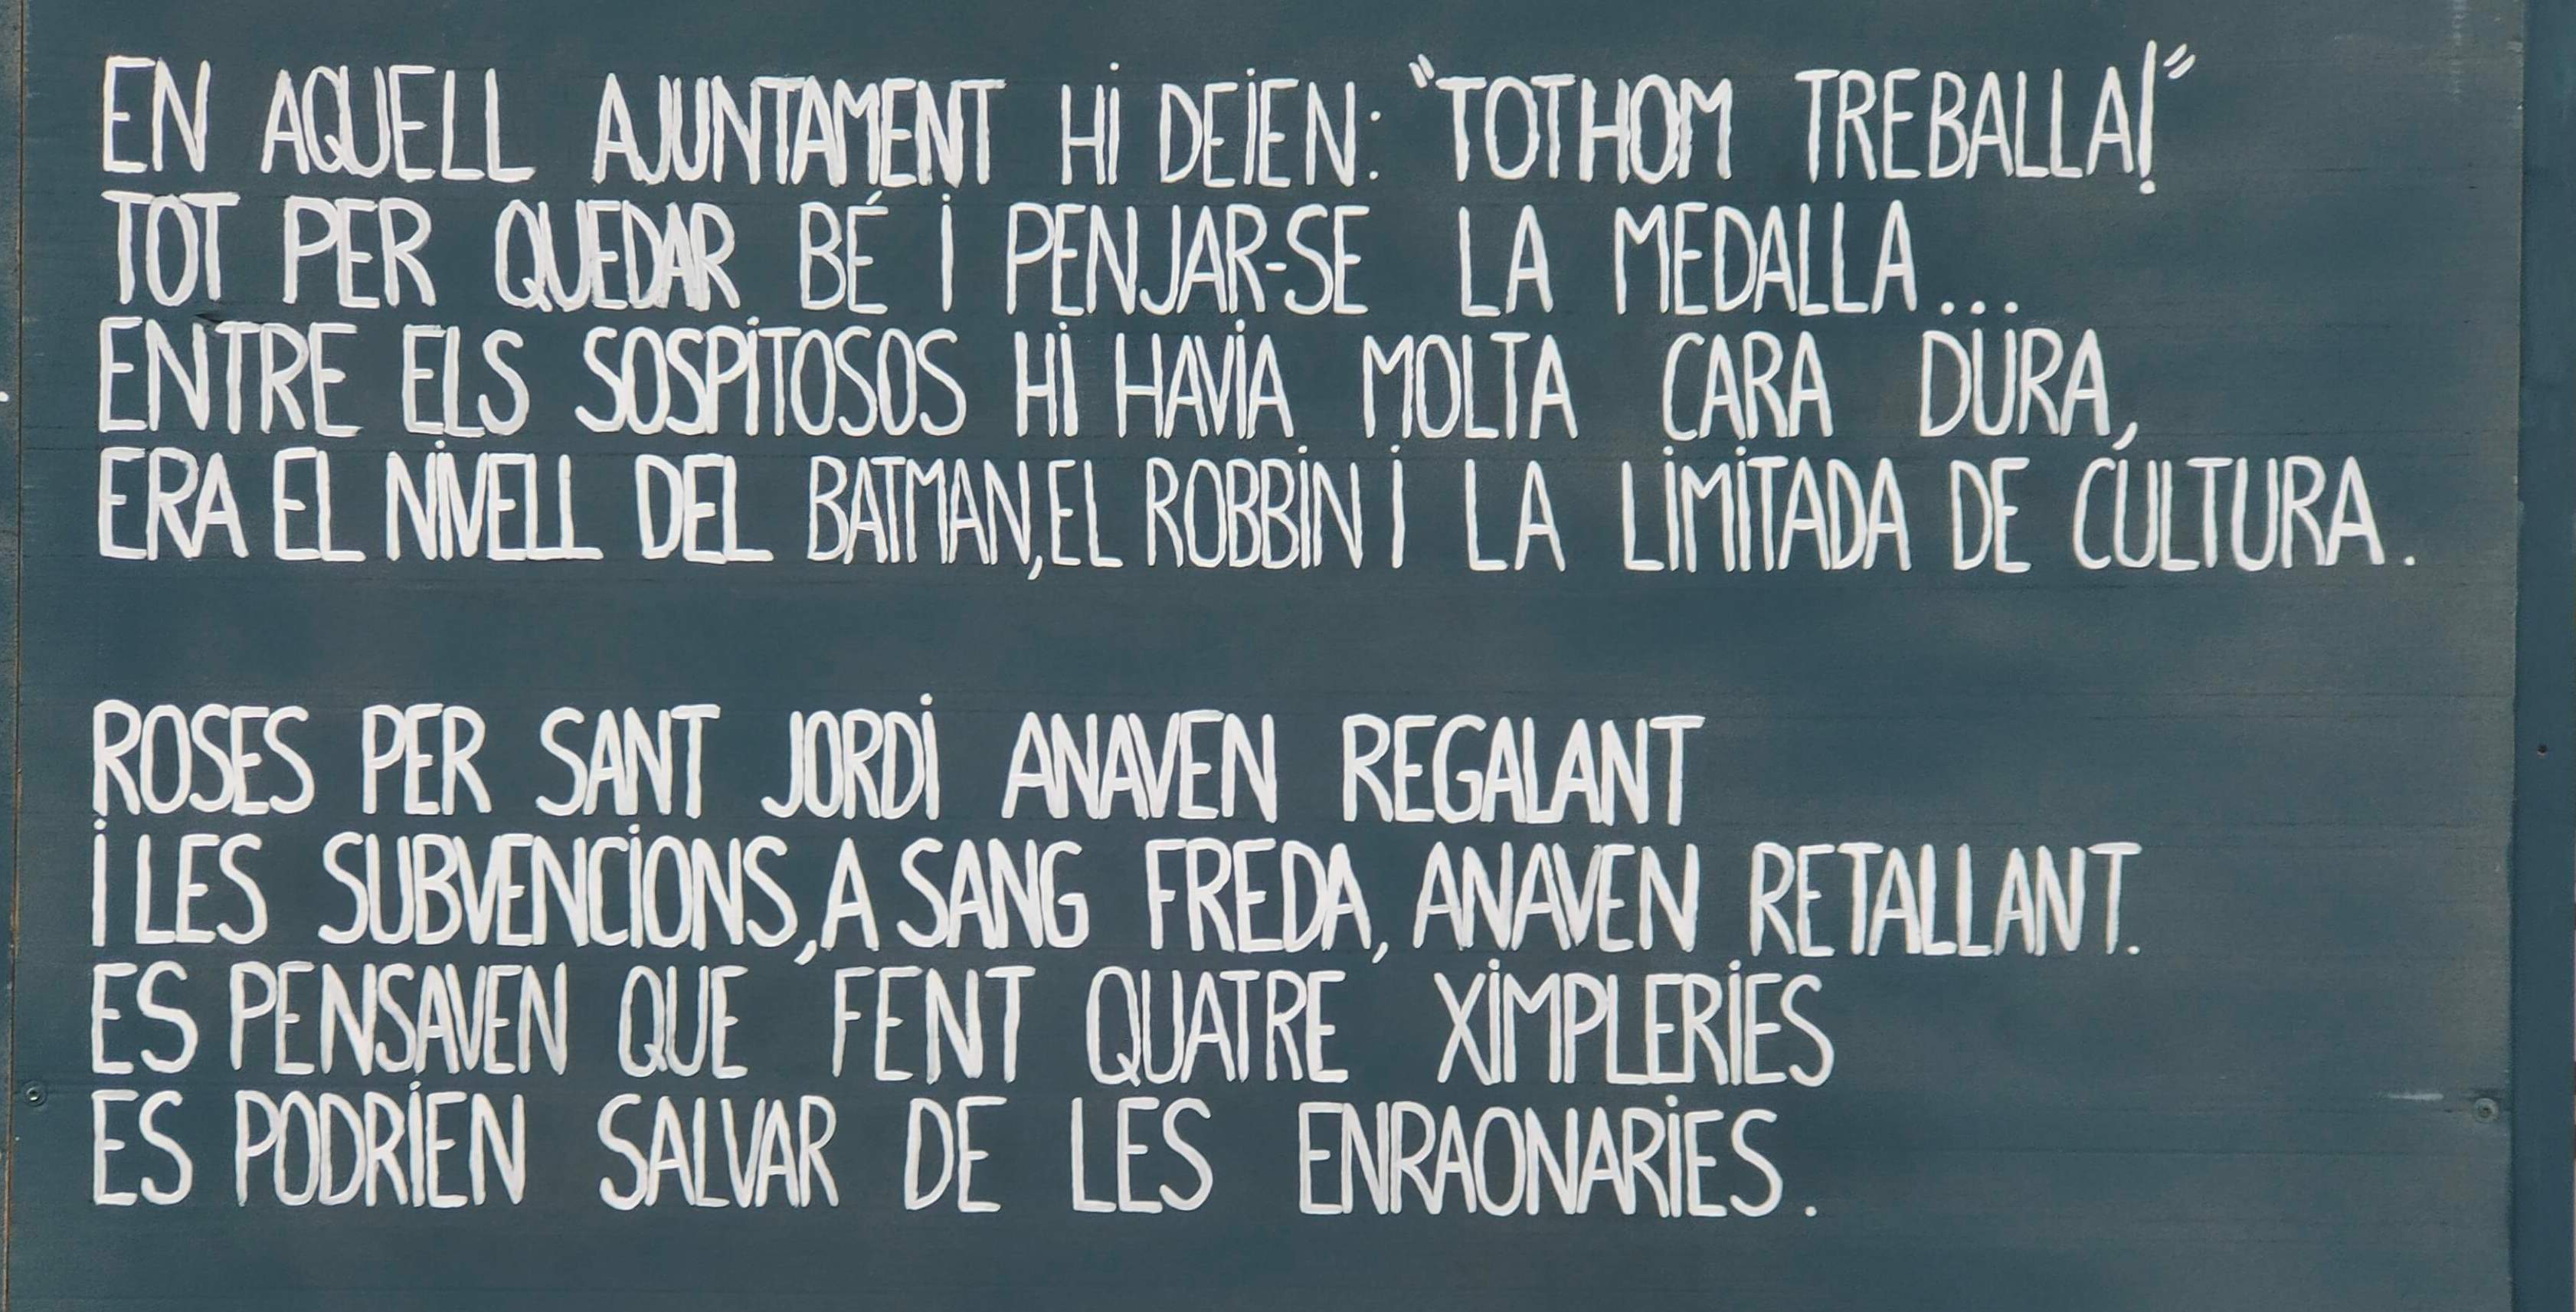 EN AQUELL AJUNTAMENT Hi DEiEN: "TOTHOM TREBALLA!"
TOT PER QUEDAR BÉ i PENJAR-SE LA MEDALLA...
ENTRE ELS SOSPiTOSOS Hi HAViA MOLTA CARA DURA,
ERA EL NiVELL DEL BATMAN, EL ROBBiN i LA LiMiTADA DE CULTURA.
ROSES PER SANT JORDi ANAVEN REGALANT
i LES SUBVENCiONS, A SANG FREDA, ANAVEN RETALLANT.
ES PENSAVEN QUE FENT QUATRE XiMPLERiES
ES PODRiEN SALVAR DE LES ENRAONARiES.